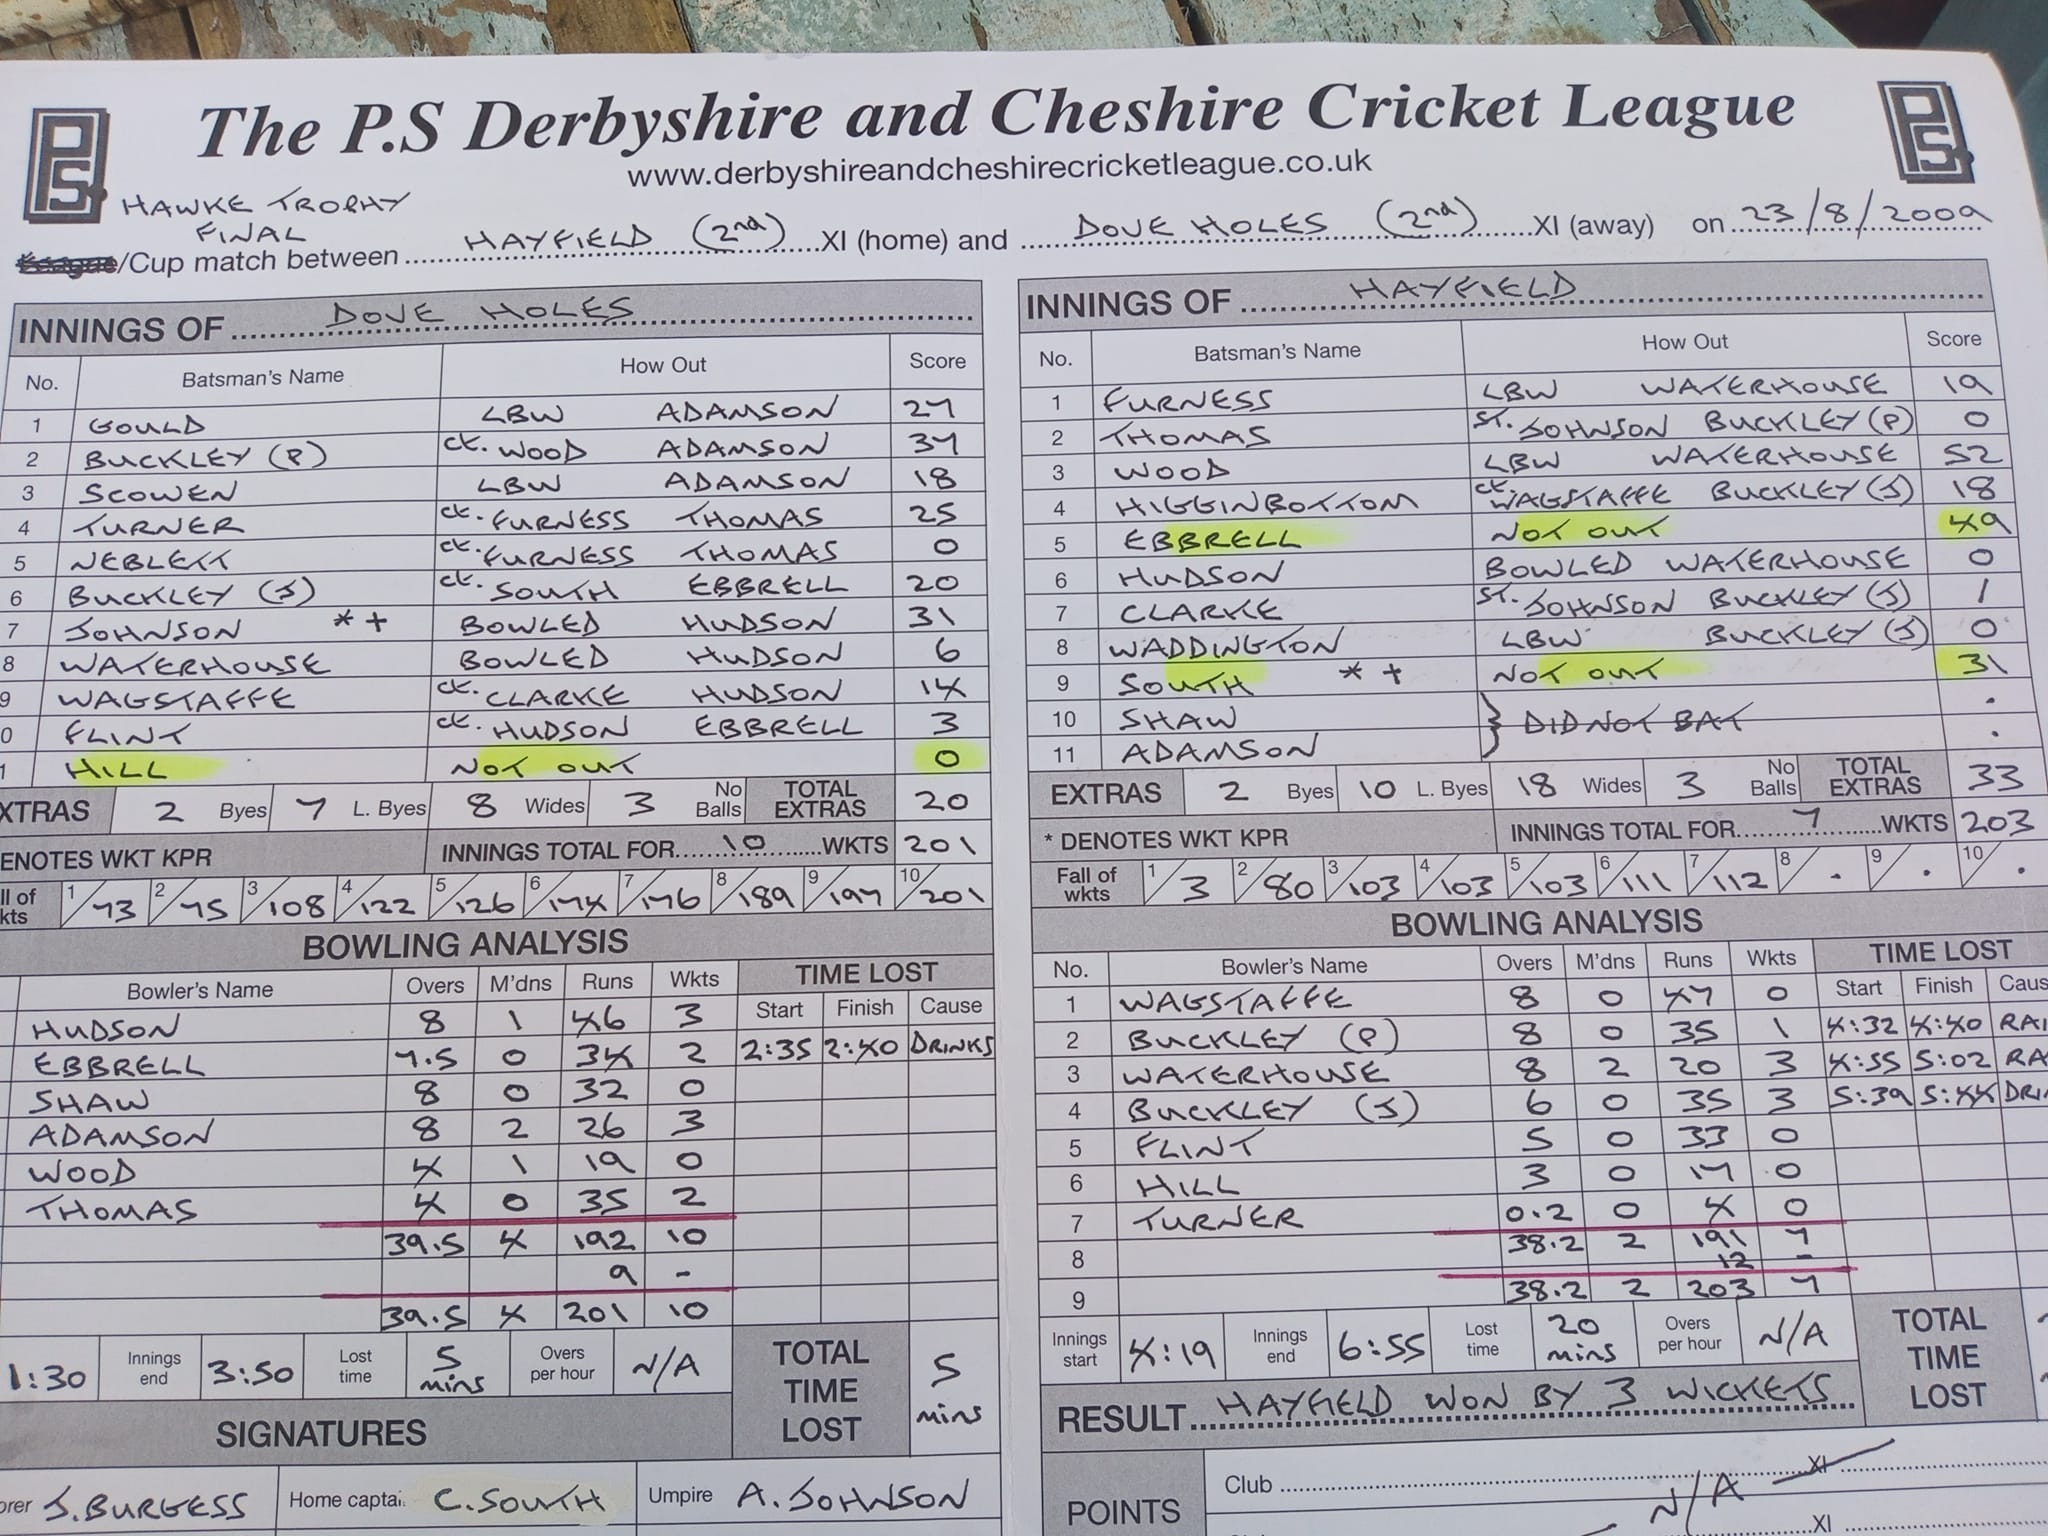 The P.S Derbyshire and Cheshire Cricket League
www.derbyshireandcheshirecricketleague.co.uk
PS
PS
HAWKE TROPHY
FINAL
League/Cup match between HAYFIELD (2nd) XI (home) and DOVE HOLES (2nd) XI (away) on 23/8/2009
INNINGS OF DOVE HOLES
No. Batsman's Name How Out Score
1 GOULD LBW ADAMSON 27
2 BUCKLEY (P) ct. WOOD ADAMSON 37
3 SCOWEN LBW ADAMSON 18
4 TURNER ct. FURNESS THOMAS 25
5 NEBLETT ct. FURNESS THOMAS 0
6 BUCKLEY (J) ct. SOUTH EBBRELL 20
7 JOHNSON * + BOWLED HUDSON 31
8 WATERHOUSE BOWLED HUDSON 6
9 WAGSTAFFE ct. CLARKE HUDSON 14
0 FLINT ct. HUDSON EBBRELL 3
1 HILL NOT OUT 0
XTRAS 2 Byes 7 L. Byes 8 Wides 3 No Balls TOTAL EXTRAS 20
ENOTES WKT KPR INNINGS TOTAL FOR 10 WKTS 201
ll of kts 1/73 2/75 3/108 4/122 5/126 6/174 7/176 8/189 9/197 10/201
BOWLING ANALYSIS
Bowler's Name Overs M'dns Runs Wkts TIME LOST
Start Finish Cause
HUDSON 8 1 46 3
EBBRELL 7.5 0 34 2 2:35 2:40 DRINKS
SHAW 8 0 32 0
ADAMSON 8 2 26 3
WOOD 4 1 19 0
THOMAS 4 0 35 2
39.5 4 192 10
9 -
39.5 4 201 10
1:30 Innings end 3:50 Lost time 5 mins Overs per hour N/A TOTAL TIME LOST 5 mins
SIGNATURES
orer J. BURGESS Home captai. C. SOUTH Umpire A. JOHNSON
INNINGS OF HAYFIELD
No. Batsman's Name How Out Score
1 FURNESS LBW WATERHOUSE 19
2 THOMAS ST. JOHNSON BUCKLEY (P) 0
3 WOOD LBW WATERHOUSE 52
4 HIGGINBOTTOM ct. WAGSTAFFE BUCKLEY (J) 18
5 EBBRELL NOT OUT 49
6 HUDSON BOWLED WATERHOUSE 0
7 CLARKE ST. JOHNSON BUCKLEY (J) 1
8 WADDINGTON LBW BUCKLEY (J) 0
9 SOUTH * + NOT OUT 31
10 SHAW } DID NOT BAT .
11 ADAMSON .
EXTRAS 2 Byes 10 L. Byes 18 Wides 3 No Balls TOTAL EXTRAS 33
* DENOTES WKT KPR INNINGS TOTAL FOR 7 WKTS 203
Fall of wkts 1/3 2/80 3/103 4/103 5/103 6/111 7/112 8/. 9/. 10/.
BOWLING ANALYSIS
No. Bowler's Name Overs M'dns Runs Wkts TIME LOST
Start Finish Caus
1 WAGSTAFFE 8 0 47 0
2 BUCKLEY (P) 8 0 35 1 4:32 4:40 RAI
3 WATERHOUSE 8 2 20 3 4:55 5:02 RA
4 BUCKLEY (J) 6 0 35 3 5:39 5:44 DRI
5 FLINT 5 0 33 0
6 HILL 3 0 17 0
7 TURNER 0.2 0 4 0
8 38.2 2 191 7
12 -
9 38.2 2 203 7
Innings start 4:19 Innings end 6:55 Lost time 20 mins Overs per hour N/A TOTAL TIME LOST
RESULT HAYFIELD WON BY 3 WICKETS
POINTS Club XI
N/A
XI